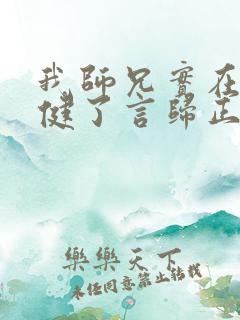 我師兄實在
健了言歸正
樂樂天下
未經同意禁止轉載